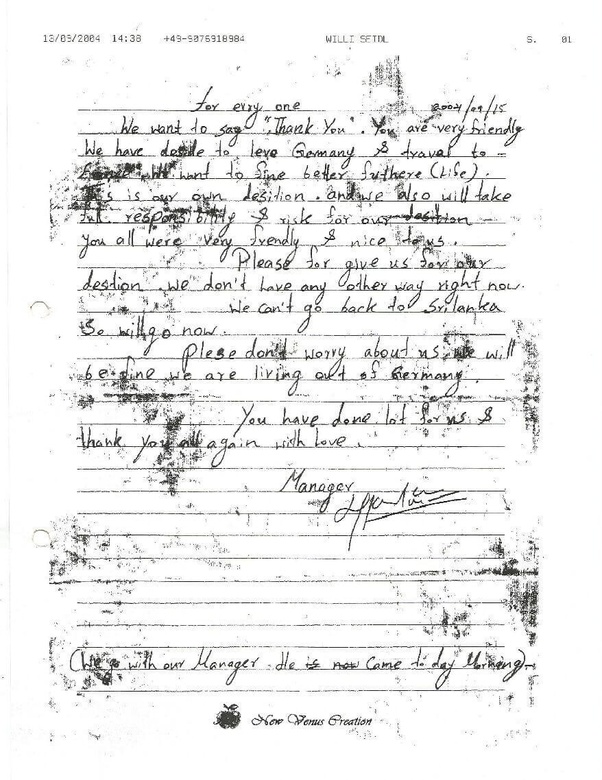 13/09/2004 14:38 +49-9076918984 WILLI SEIDL S. 01
for evry one 2004/09/15
We want to say "Thank You". You are very friendly
We have deside to leve Germany & travel to -
want to fine better futhere (Life).
is is our own desition. and we also will take
full responsibility & risk for our desition
you all were very frendly & nice to us.
Please for give us for our
destion. we don't have any other way right now.
We can't go back to Srilanka
So will go now.
Please don't worry about us, we will
be fine we are living out of Germany.
You have done lot for us &
thank you all again with love.
Manager
(We go with our Manager. He is now Came to day Morning)
New Venus Creation